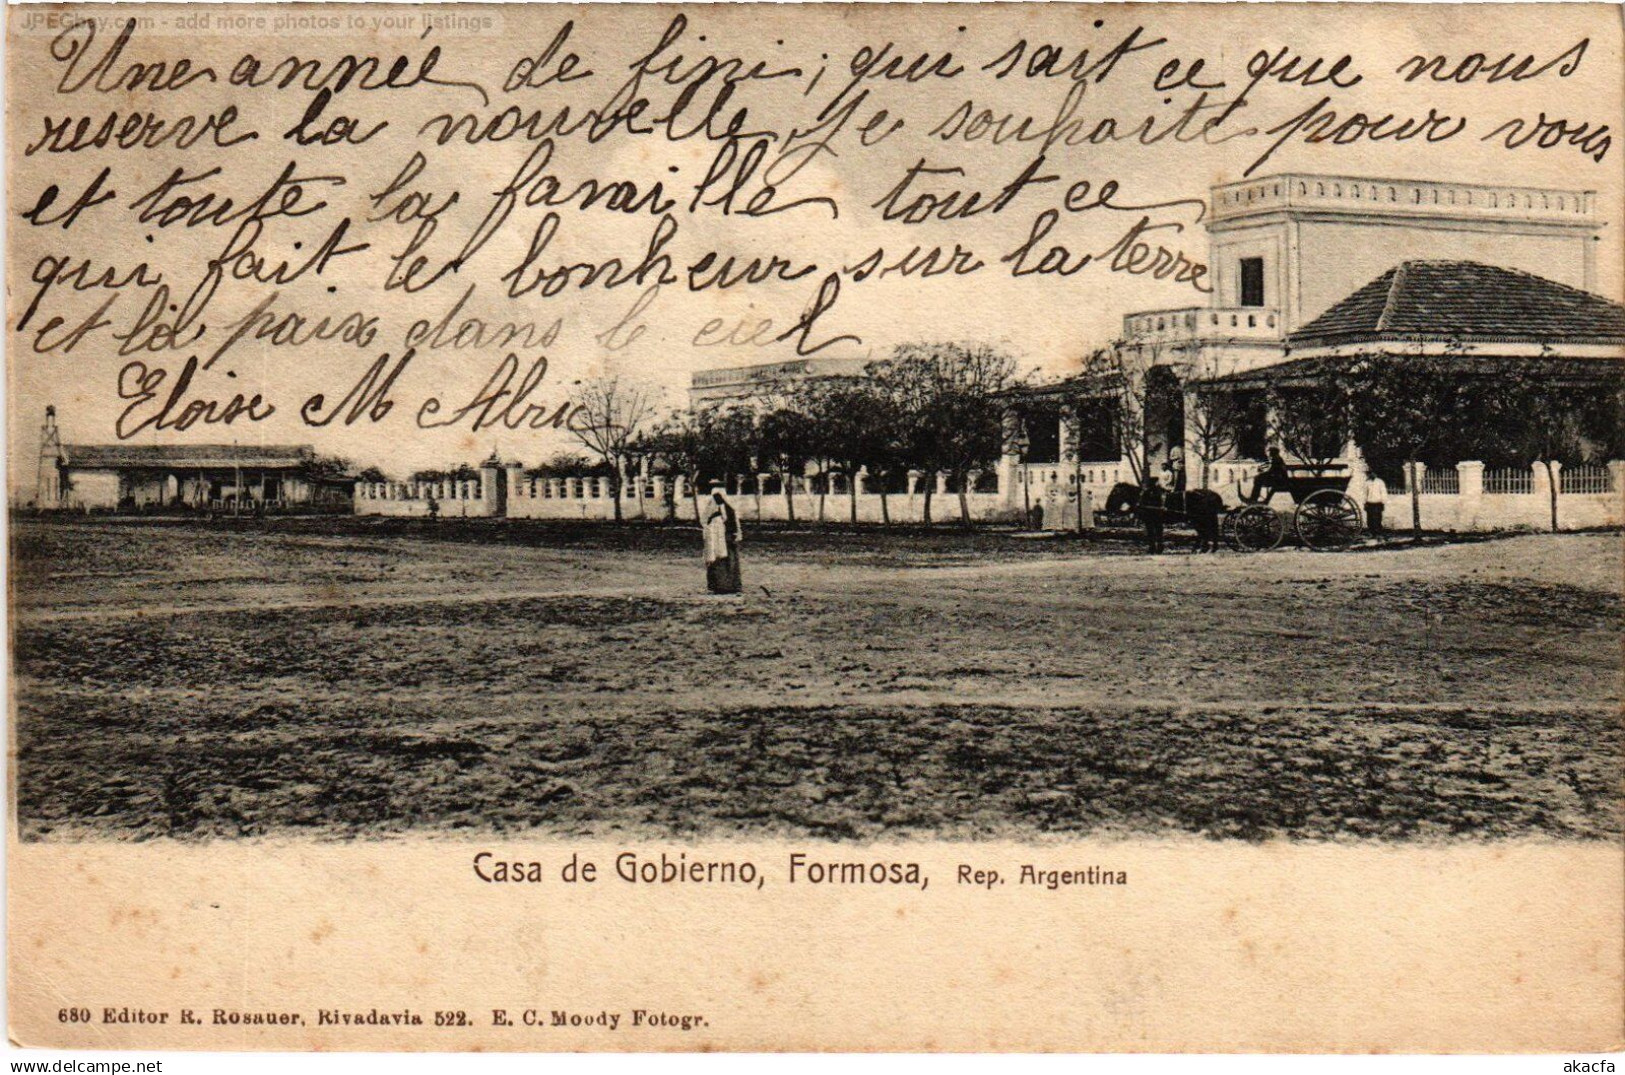 JPEGbay.com - add more photos to your listings
Une année de fini, qui sait ce que nous
reserve la nouvelle, Je souhaite pour vous
et toute la famille tout ce
qui fait le bonheur sur la terre
et la paix dans le ciel
Eloise M Abric
Casa de Gobierno, Formosa, Rep. Argentina
680 Editor R. Rosauer, Rivadavia 522. E. C. Moody Fotogr.
akacfa